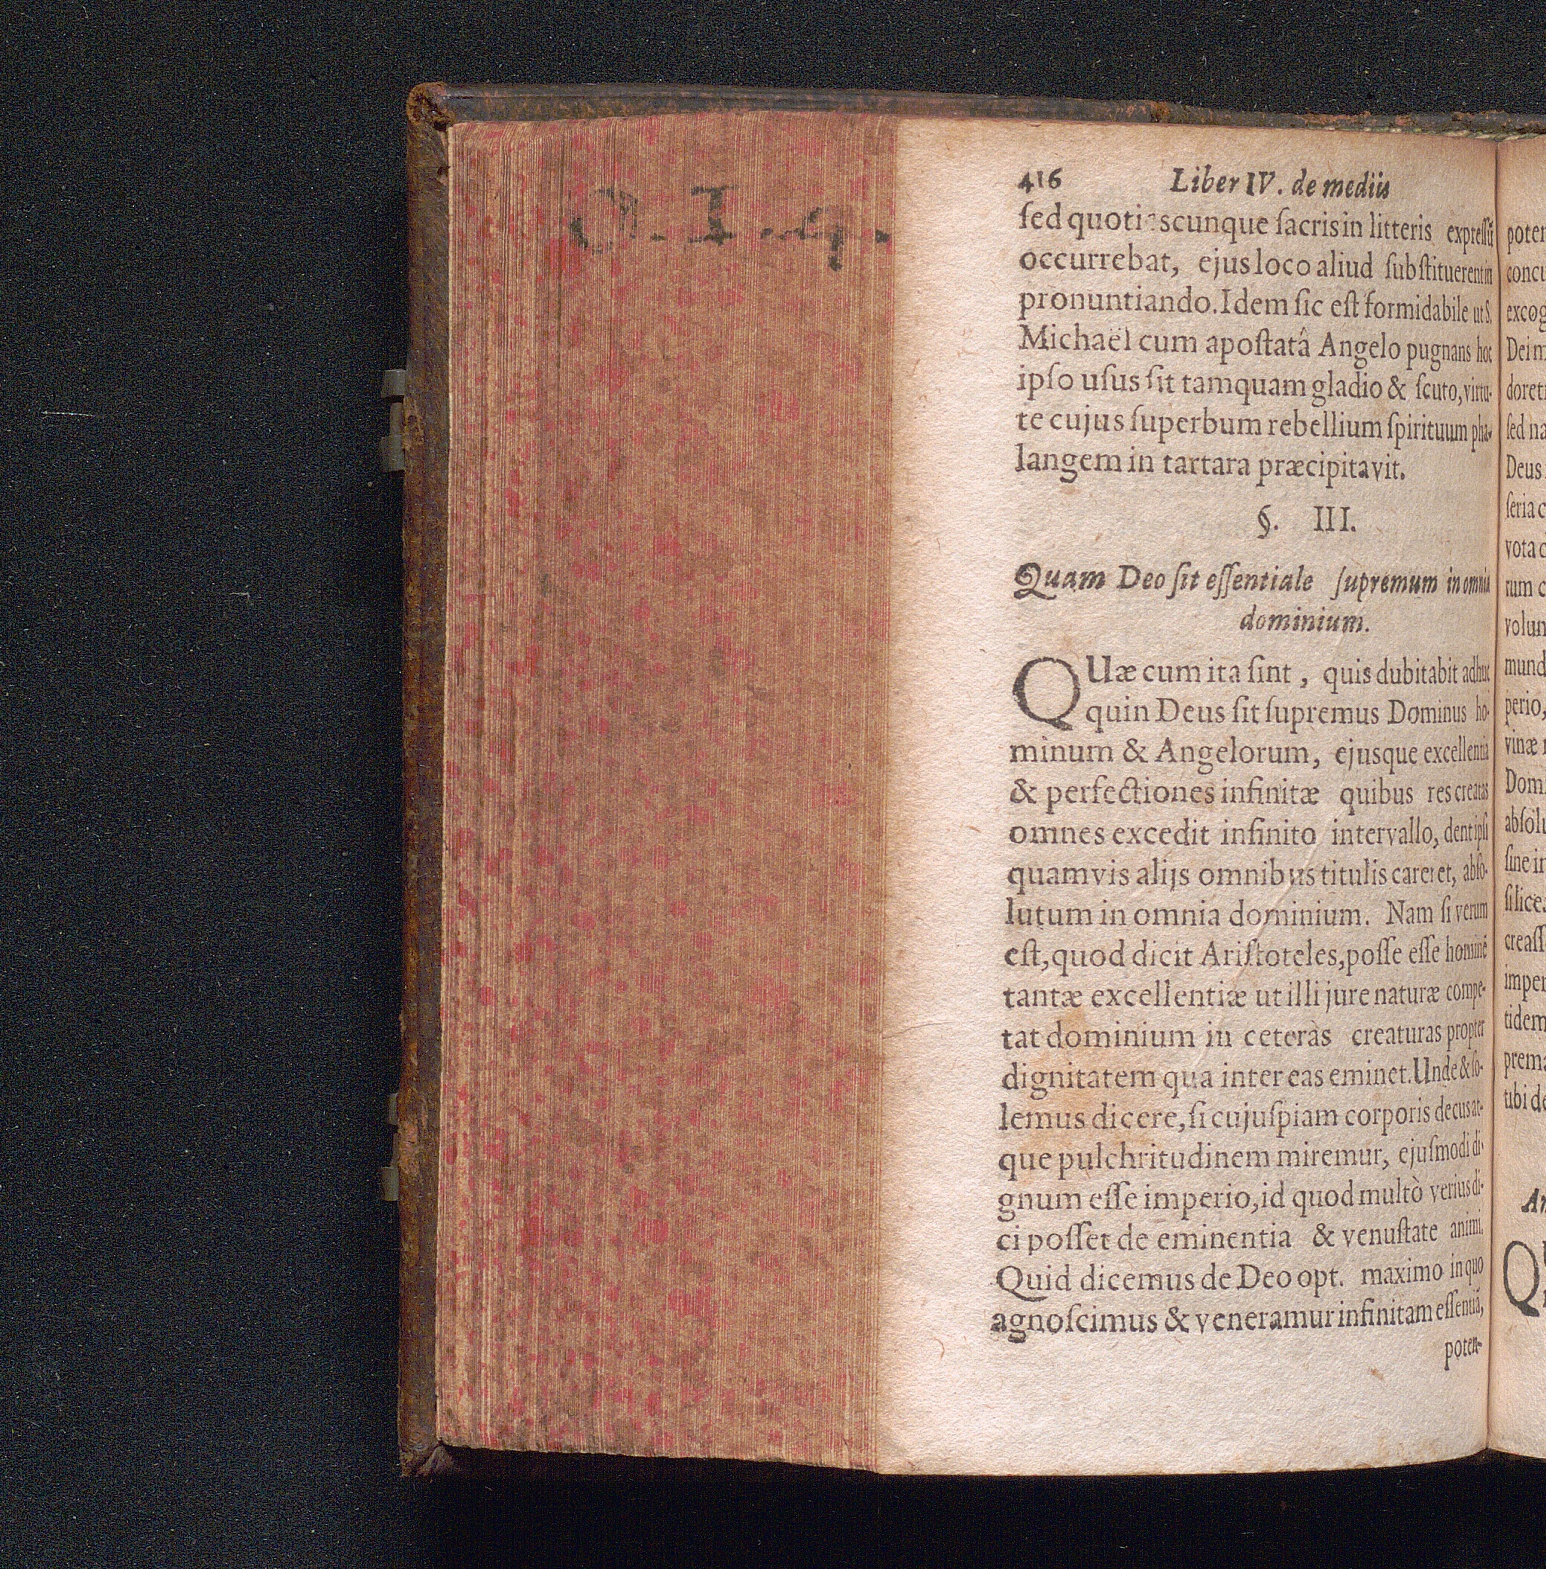 O. I. q.
416 Liber IV. de mediis
sed quotiescunque sacris in litteris expressũ
occurrebat, ejus loco aliud substituerent in
pronuntiando. Idem sic est formidabile ut S.
Michaël cum apostatâ Angelo pugnans hoc
ipso usus sit tamquam gladio & scuto, virtu-
te cujus superbum rebellium spirituum pha-
langem in tartara præcipitavit.
§. III.
Quam Deo sit essentiale supremum in omnia
dominium.
QUæ cum ita sint, quis dubitabit adhuc
quin Deus sit supremus Dominus ho-
minum & Angelorum, ejusque excellentiâ
& perfectiones infinitæ quibus res creatas
omnes excedit infinito intervallo, dent ipsi
quamvis alijs omnibus titulis careret, abso-
lutum in omnia dominium. Nam si verum
est, quod dicit Aristoteles, posse esse hominẽ
tantæ excellentiæ ut illi jure naturæ compe-
tat dominium in ceteras creaturas propter
dignitatem qua inter eas eminet. Unde & so-
lemus dicere, si cujuspiam corporis decus at-
que pulchritudinem miremur, ejusmodi di-
gnum esse imperio, id quod multò verius di-
ci posset de eminentia & venustate animi.
Quid dicemus de Deo opt. maximo in quo
agnoscimus & veneramur infinitam essentiã,
poten-